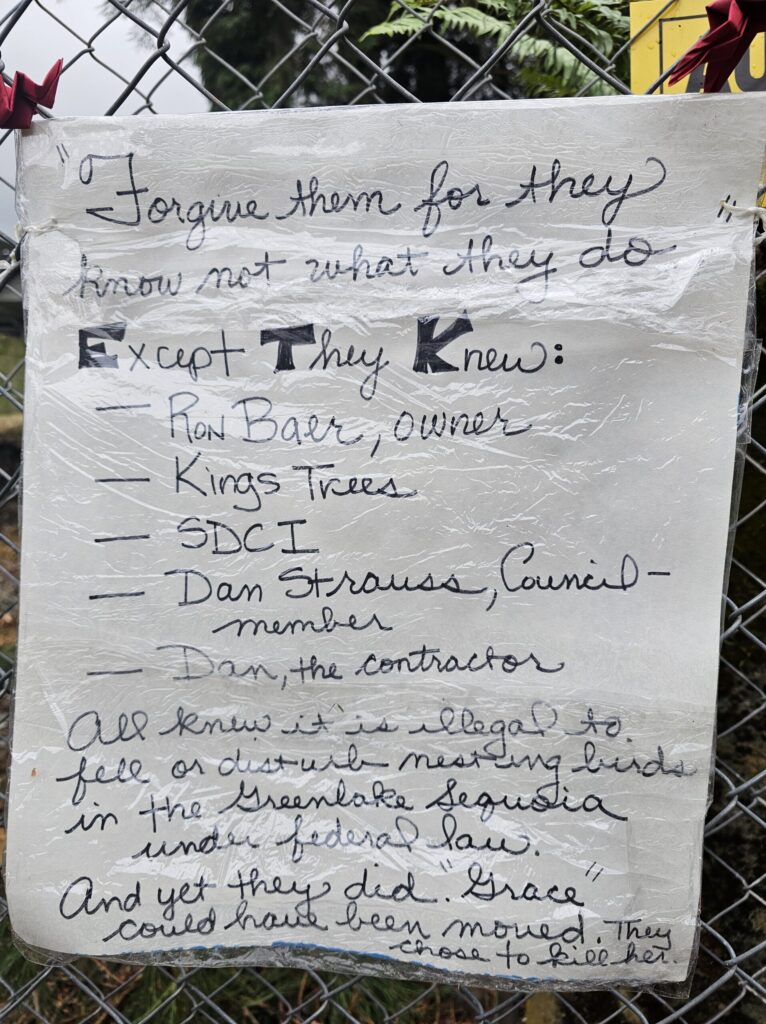 "Forgive them for they
know not what they do"
Except They Knew:
— Ron Baer, owner
— Kings Trees
— SDCI
— Dan Strauss, Council-
member
— Dan, the contractor
All knew it is illegal to
fell or disturb nesting birds
in the Greenlake Sequoia
under federal law.
And yet they did. "Grace"
could have been moved. They
chose to kill her.